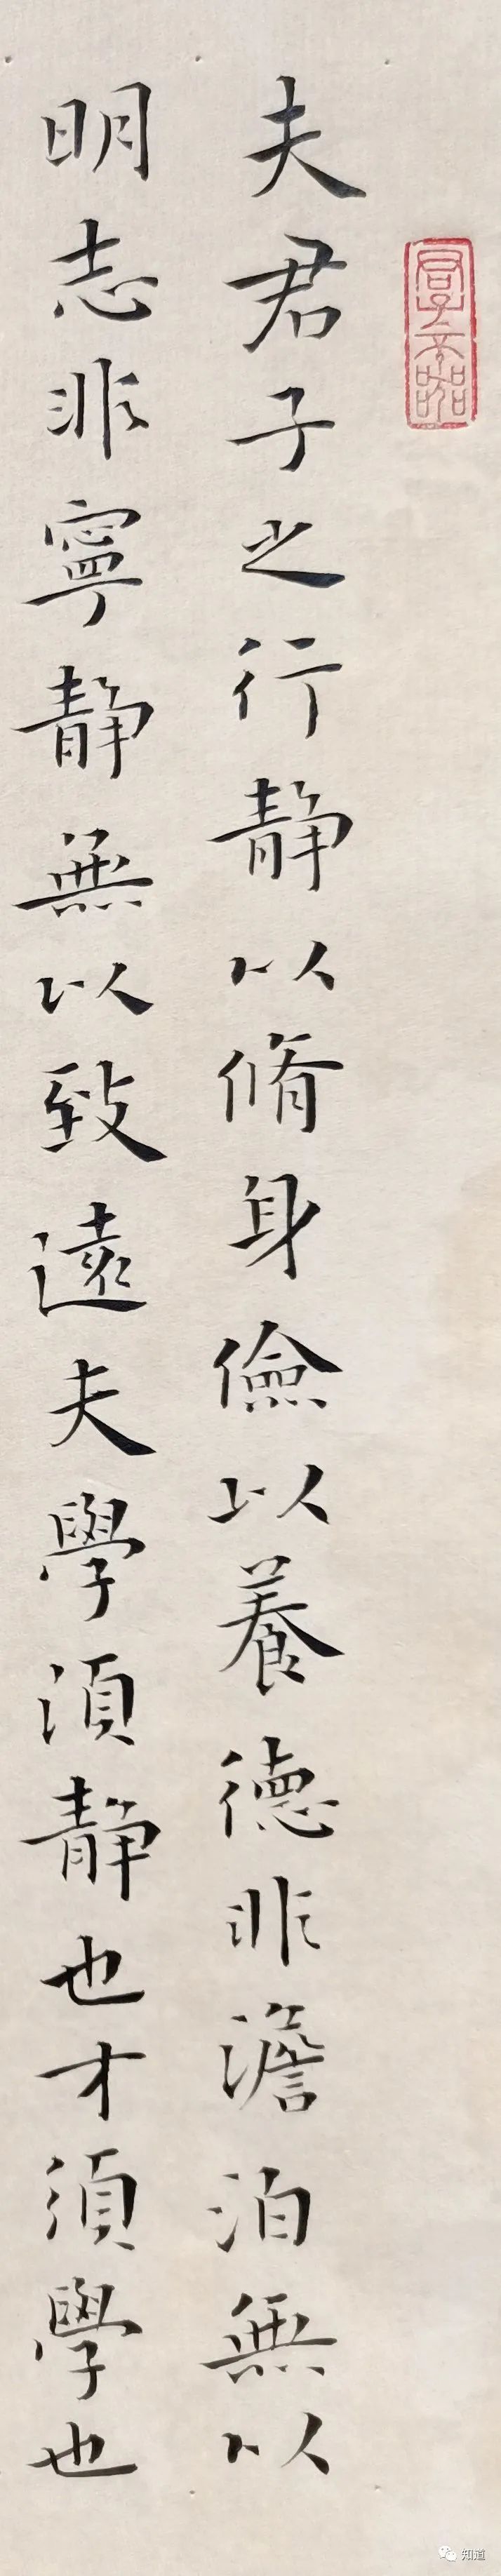 夫君子之行靜以脩身儉以養德非澹泊無以
明志非寧靜無以致遠夫學須靜也才須學也
知道